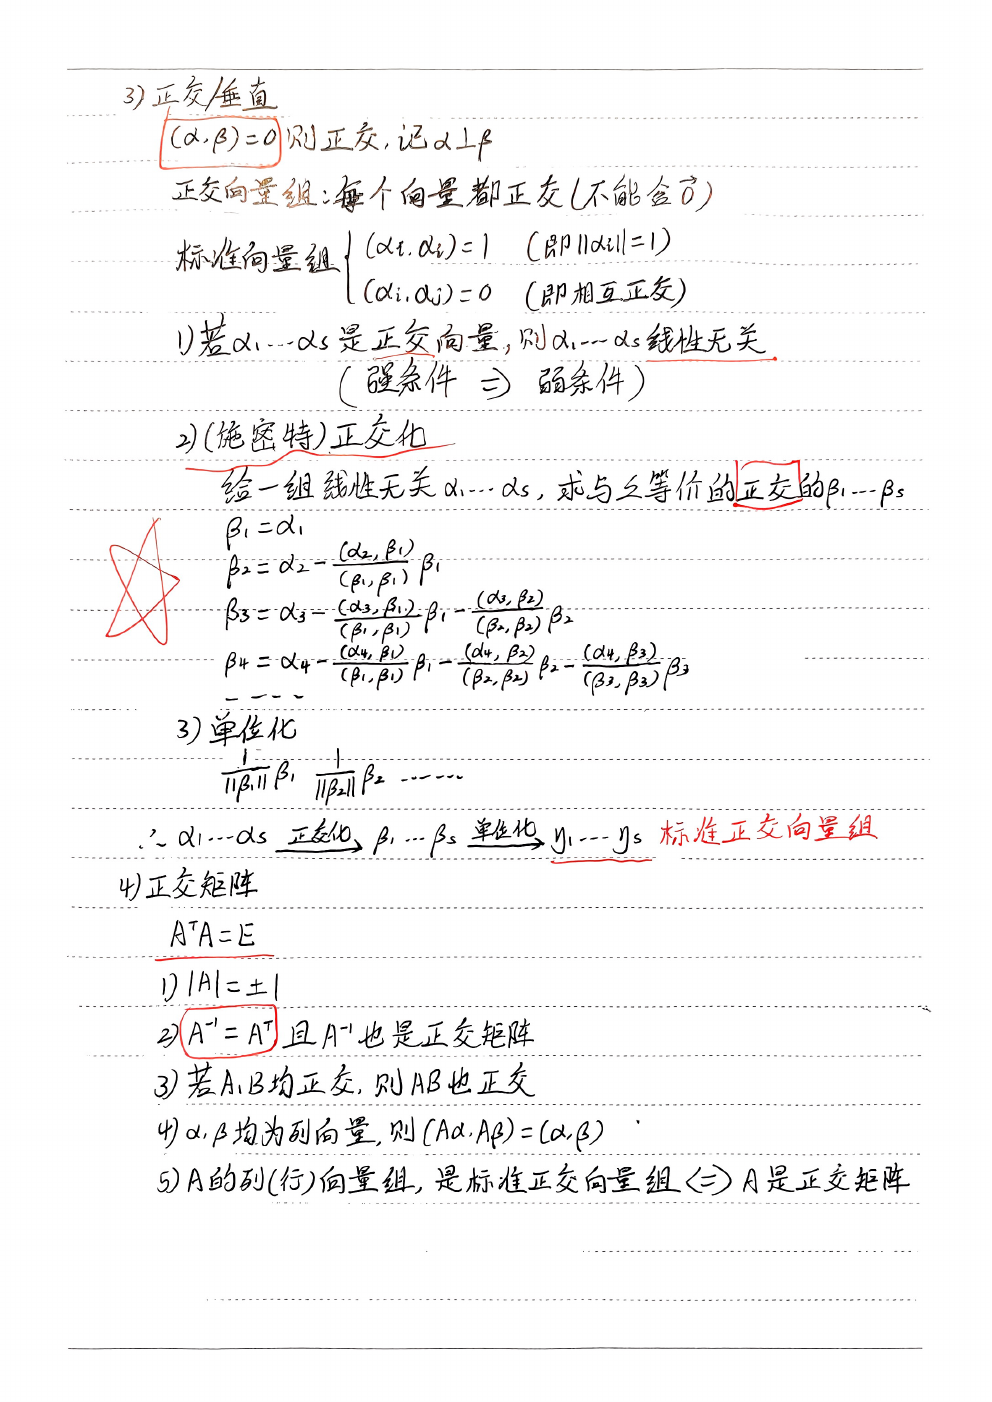 3) 正交/垂直
(α,β)=0 则正交,记α⊥β
正交向量组:每个向量都正交(不能含0⃗)
标准向量组{(αi,αi)=1 (即||αi||=1)
(αi,αj)=0 (即相互正交)
1)若α1…αs是正交向量,则α1…αs线性无关
(强条件 => 弱条件)
2)(施密特)正交化
给一组线性无关α1…αs,求与之等价的正交的β1…βs
β1=α1
β2=α2-(α2,β1)/(β1,β1)β1
β3=α3-(α3,β1)/(β1,β1)β1-(α3,β2)/(β2,β2)β2
β4=α4-(α4,β1)/(β1,β1)β1-(α4,β2)/(β2,β2)β2-(α4,β3)/(β3,β3)β3
----
3)单位化
1/||β1||β1 1/||β2||β2 ……
∴α1…αs 正交化→ β1…βs 单位化→ η1…ηs 标准正交向量组
4)正交矩阵
AᵀA=E
1)|A|=±1
2)A⁻¹=Aᵀ 且A⁻¹也是正交矩阵
3)若A,B均正交,则AB也正交
4)α,β均为列向量,则(Aα,Aβ)=(α,β)
5)A的列(行)向量组,是标准正交向量组<=>A是正交矩阵